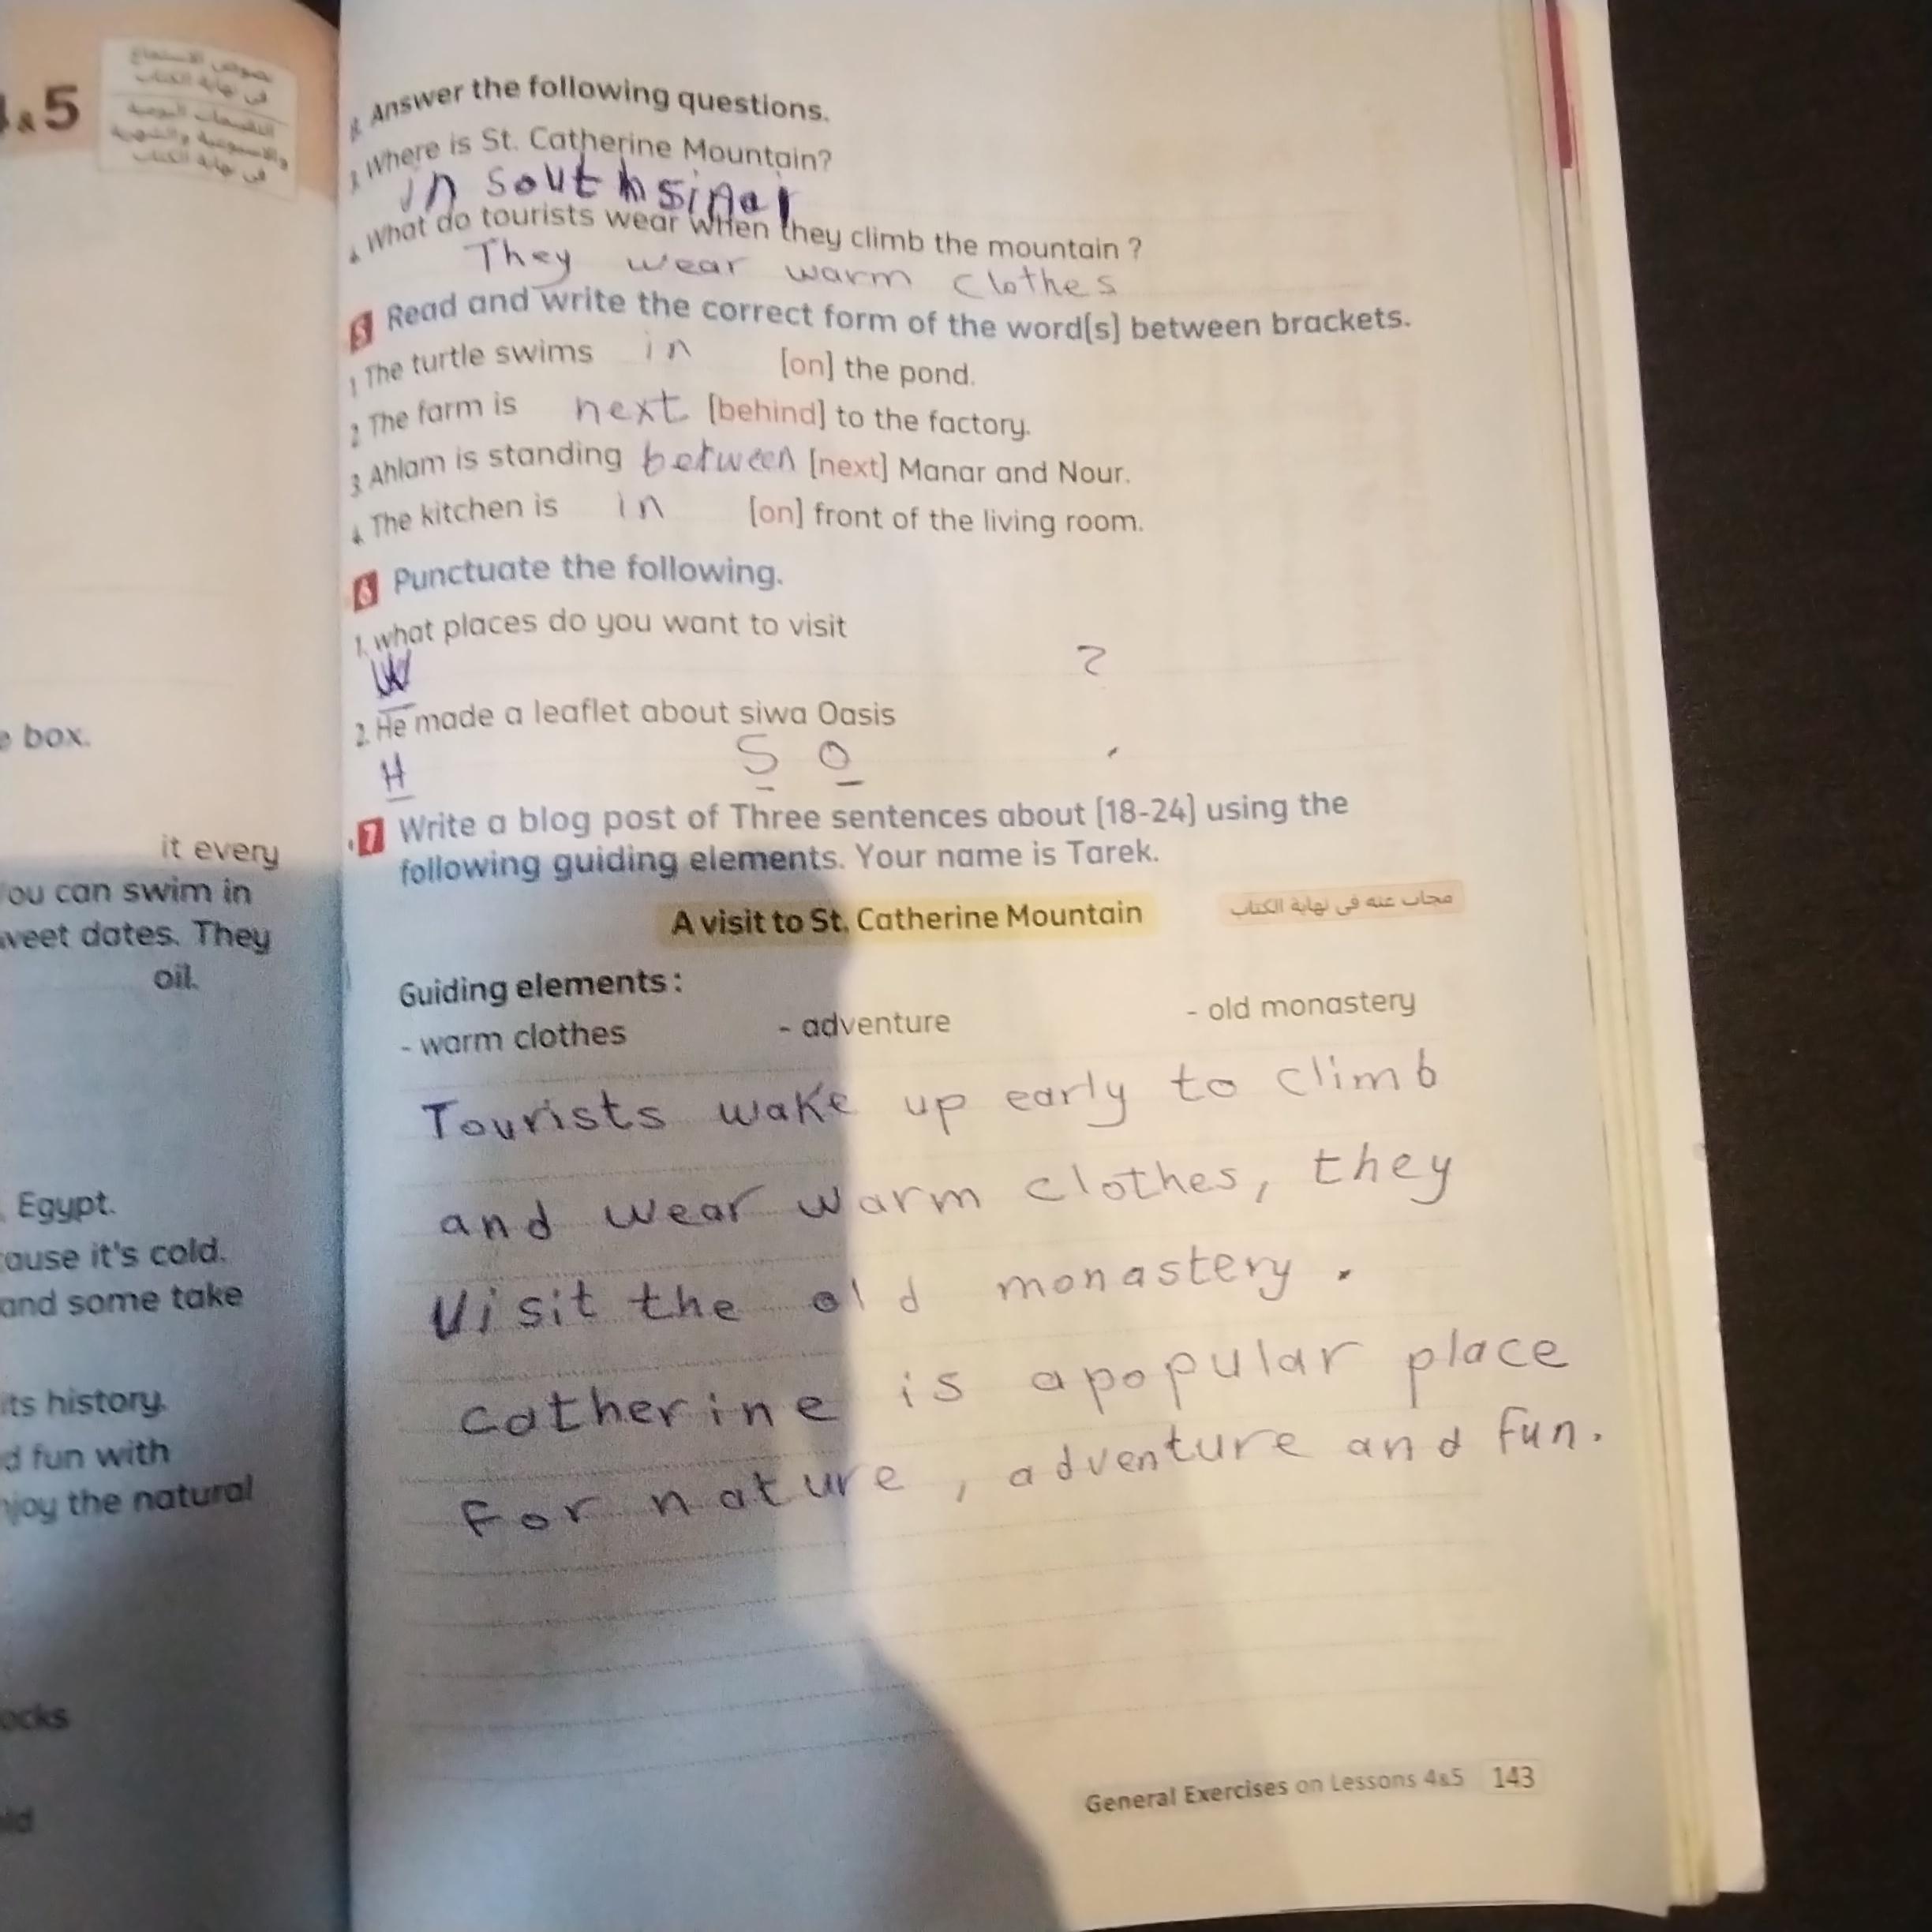 &5
نصوص الاستماع
فى نهاية الكتاب
التقييمات اليومية
والأسبوعية والشهرية
فى نهاية الكتاب
box.
it every
ou can swim in
weet dates. They
oil.
Egypt.
ause it's cold.
and some take
its history.
d fun with
njoy the natural
ocks
Answer the following questions.
3. Where is St. Catherine Mountain?
in south sinai
4. What do tourists wear when they climb the mountain ?
They wear warm clothes
5 Read and write the correct form of the word[s] between brackets.
1. The turtle swims in [on] the pond.
2. The farm is next [behind] to the factory.
3. Ahlam is standing between [next] Manar and Nour.
4. The kitchen is in [on] front of the living room.
6 Punctuate the following.
1. what places do you want to visit
W ?
2. He made a leaflet about siwa Oasis
H S O .
7 Write a blog post of Three sentences about [18-24] using the
following guiding elements. Your name is Tarek.
A visit to St. Catherine Mountain
مجاب عنه فى نهاية الكتاب
Guiding elements :
- warm clothes - adventure - old monastery
Tourists wake up early to climb
and wear warm clothes, they
visit the old monastery .
catherine is a popular place
For nature , adventure and fun.
General Exercises on Lessons 4&5 143